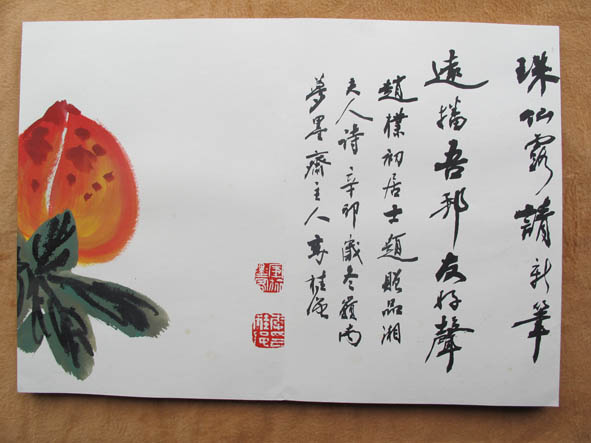 珠仙露請新筆
遠播吾邦友好聲
趙樸初居士題贈品湘
夫人詩辛卯歲冬嶺南
夢墨齋主人李桂